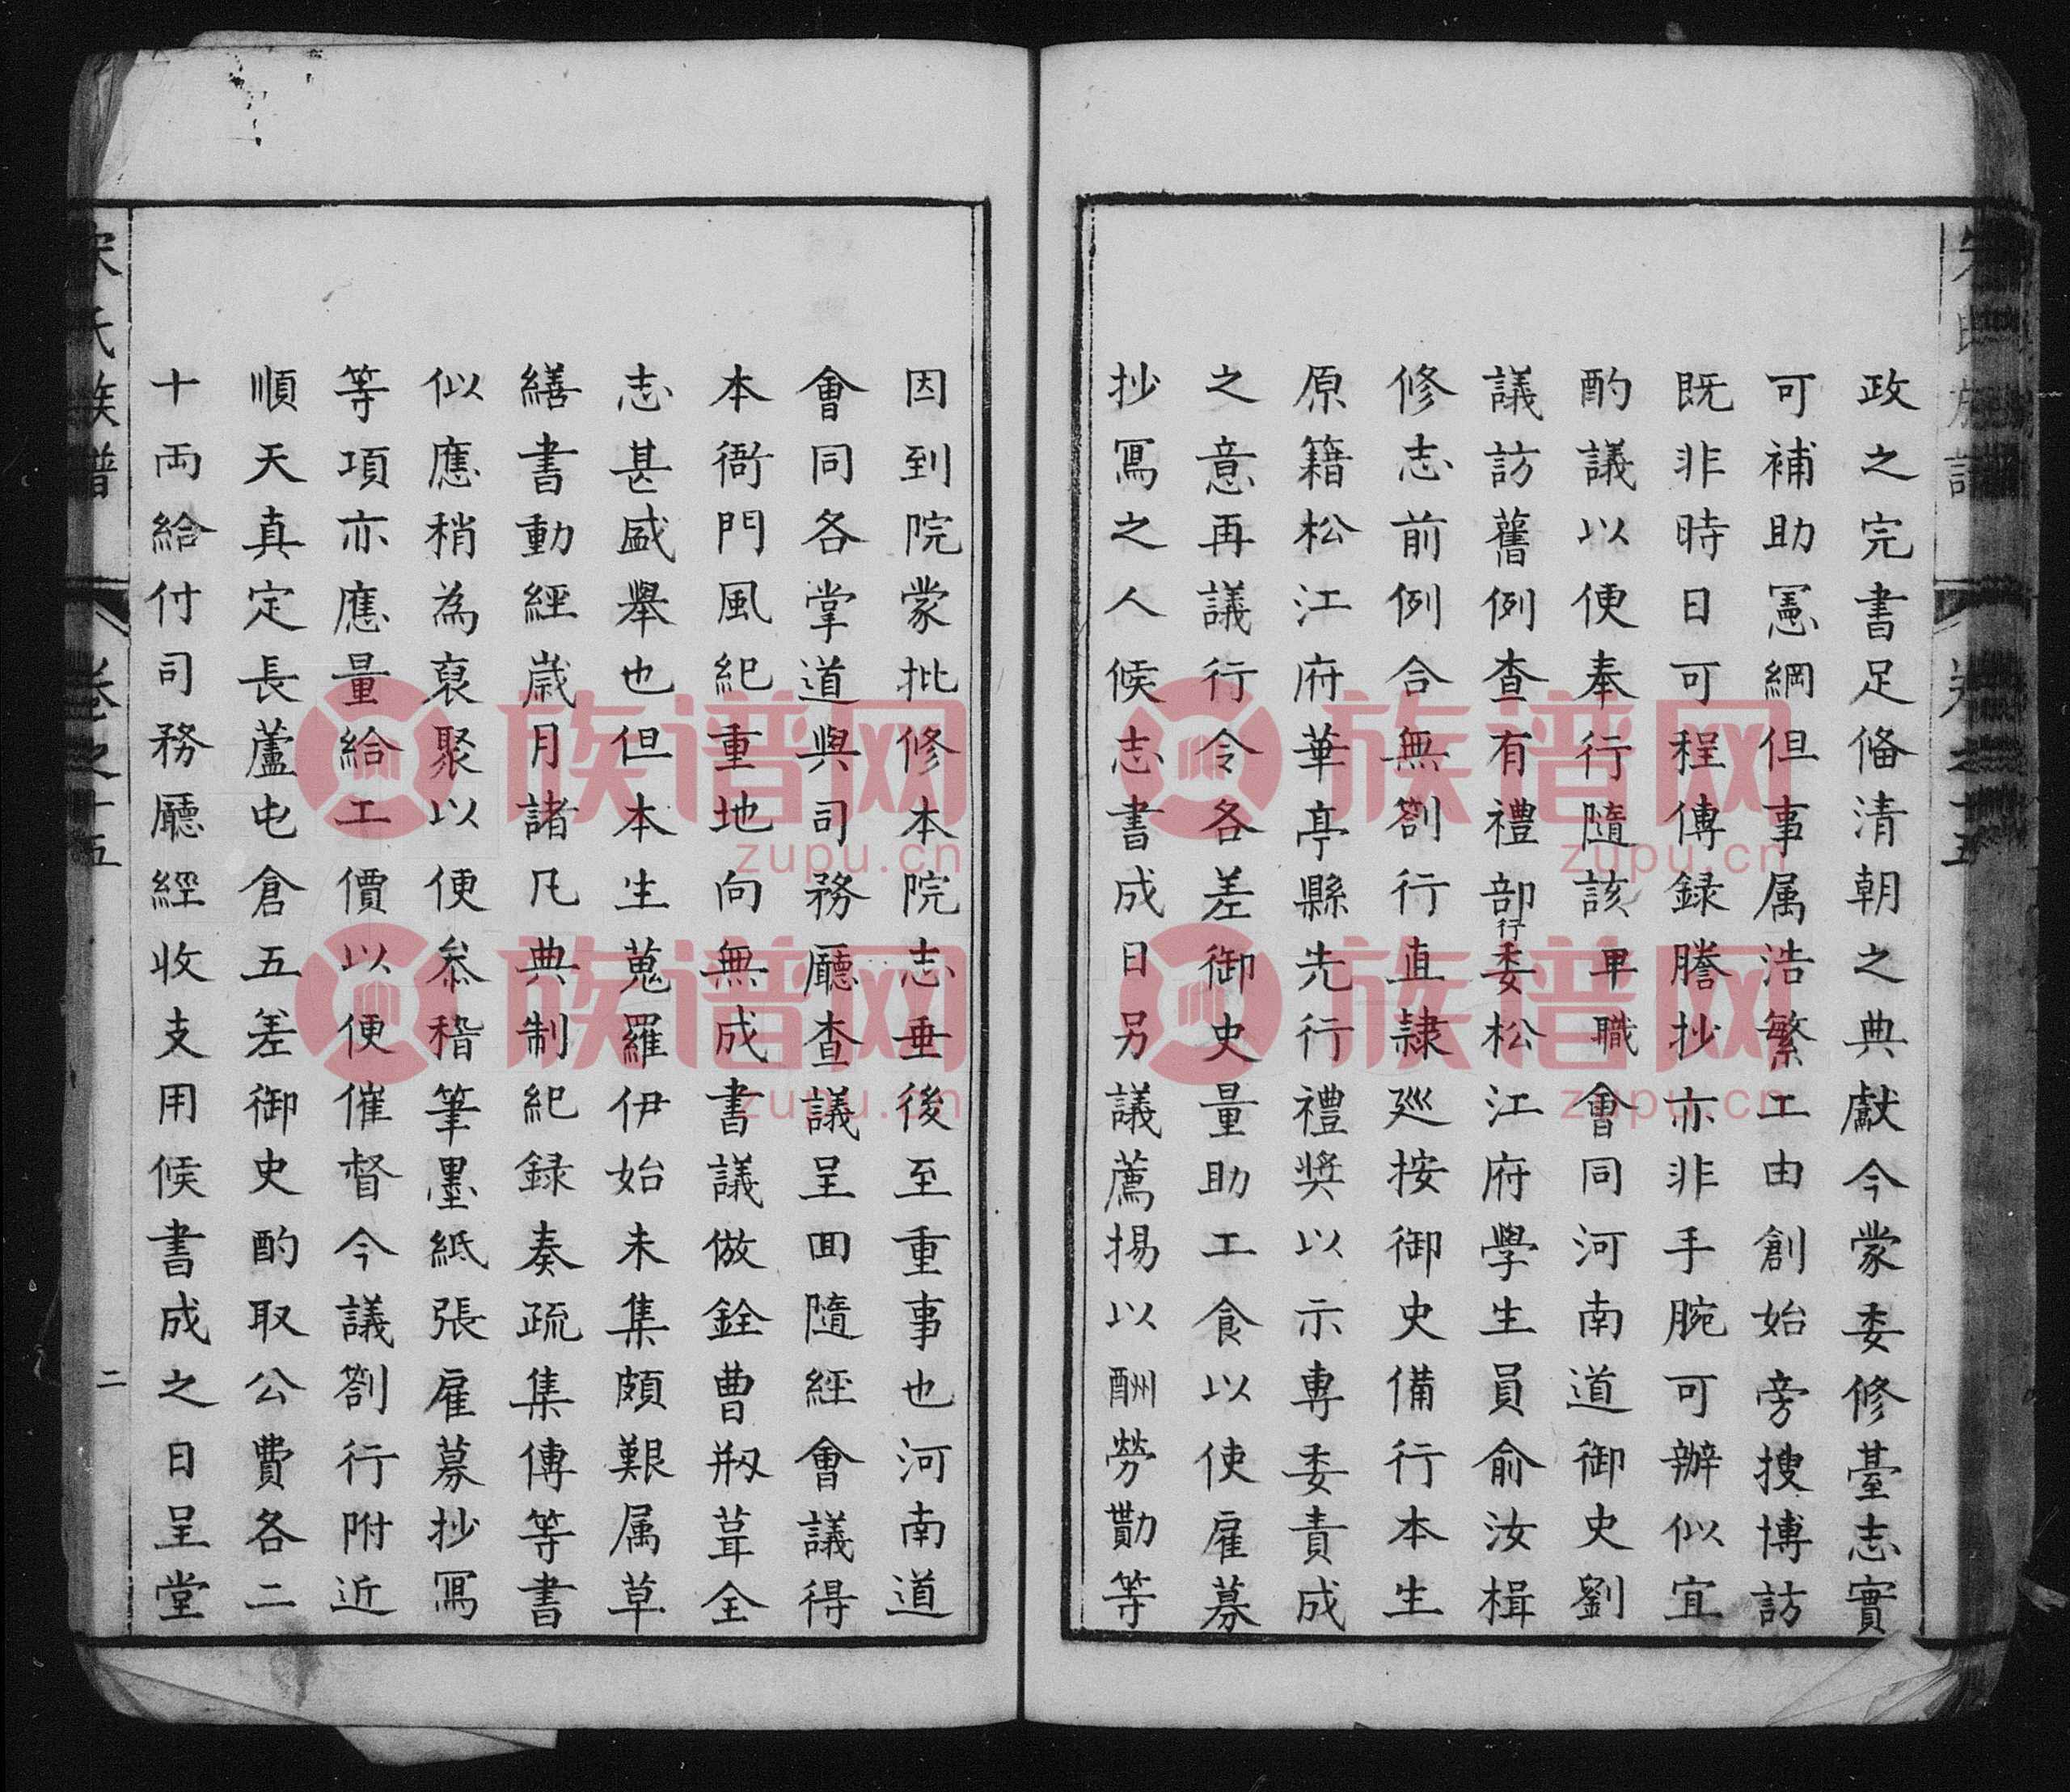 政之完書足俻清朝之典獻今蒙委修臺志實
可補助憲綱但事属浩繁工由創始旁搜博訪
既非時日可程傳録謄抄亦非手腕可辦似宜
酌議以便奉行隨該卑職會同河南道御史劉
議訪舊例查有禮部行委松江府學生員俞汝楫
修志前例合無劄行直隷廵按御史備行本生
原籍松江府華亭縣先行禮奬以示專委責成
之意再議行令各差御史量助工食以使雇募
抄冩之人候志書成日另議薦揚以酬勞勩等
因到院蒙批修本院志垂後至重事也河南道
會同各掌道與司務廳查議呈囬隨經會議得
本衙門風紀重地向無成書議倣銓曹剏葺全
志甚盛舉也但本生蒐羅伊始未集頗艱属草
繕書動經歲月諸凡典制紀録奏疏集傳等書
似應稍為裒聚以便叅稽筆墨紙張雇募抄冩
等項亦應量給工價以便催督今議劄行附近
順天真定長蘆屯倉五差御史酌取公費各二
十両給付司務廳經收支用候書成之日呈堂
宋氏族譜
卷之十五
二
族谱网
zupu.cn
族谱网
zupu.cn
族谱网
zupu.cn
族谱网
zupu.cn